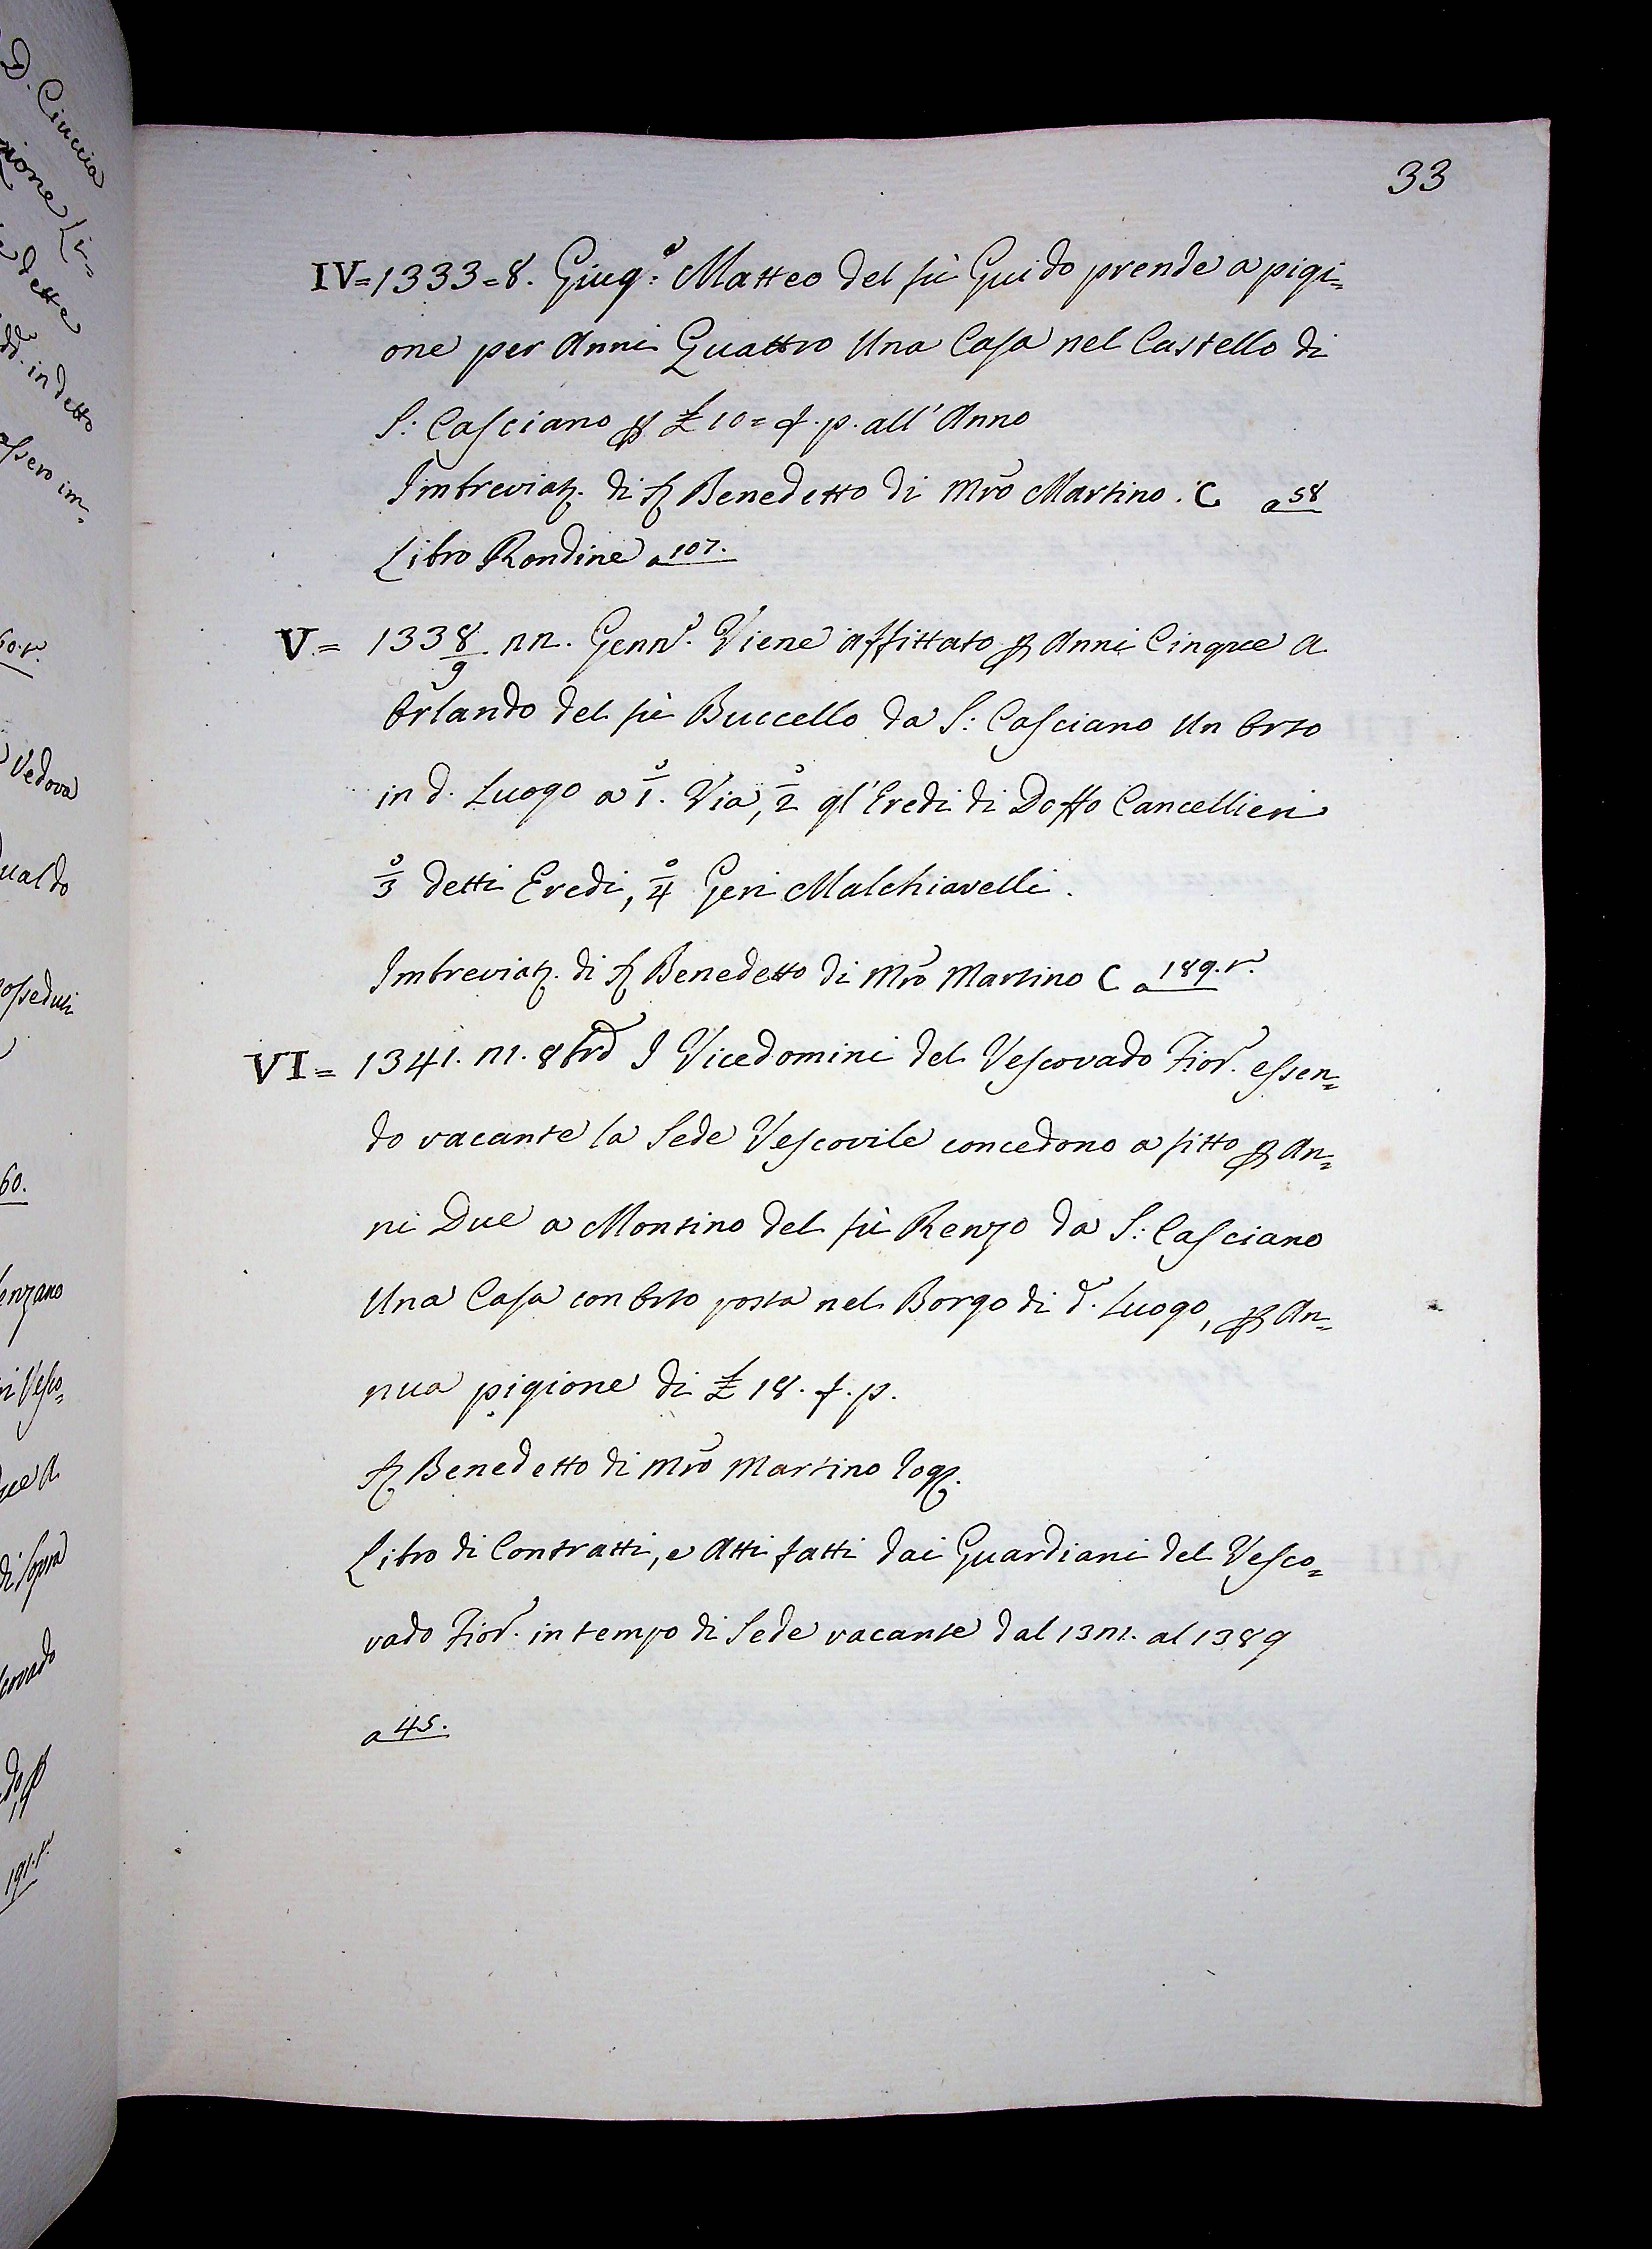 33
IV = 1333 = 8. Giug.o Matteo del fù Guido prende a pigi=
one per Anni Quattro Una Casa nel Castello di
S: Casciano p £ 10 = f. p. all' Anno
Imbreviaz. di S. Benedetto di Mro Martino. C a 58
Libro Rondine a 107.
V = 1338/9. 22. Genn.o Viene affittato p Anni Cinque a
Orlando del fù Buccello da S: Casciano Un Orto
in d. Luogo a 1.o Via, 2.o gl' Eredi di Doffo Cancellieri
3.o detti Eredi, 4.o Geri Malchiavelli.
Imbreviaz. di S. Benedetto di Mro Martino C a 189. t.
VI = 1341. 21. 8bre I Vicedomini del Vescovado Fior. essen=
do vacante la Sede Vescovile concedono a fitto p An=
ni Due a Montino del fù Renzo da S: Casciano
Una Casa con Orto posta nel Borgo di d.o Luogo, p An=
nua pigione di £ 18. f. p.
S. Benedetto di Mro Martino rog.
Libro di Contratti, e Atti fatti dai Guardiani del Vesco=
vado Fior. in tempo di Sede vacante dal 1321. al 1389
a 45.
D. Ciuccia
zione Li=
dette
in detto
60. t.
Vedova
ualdo
60.
enzano
Vesco=
di Sopra
covado
191. t.